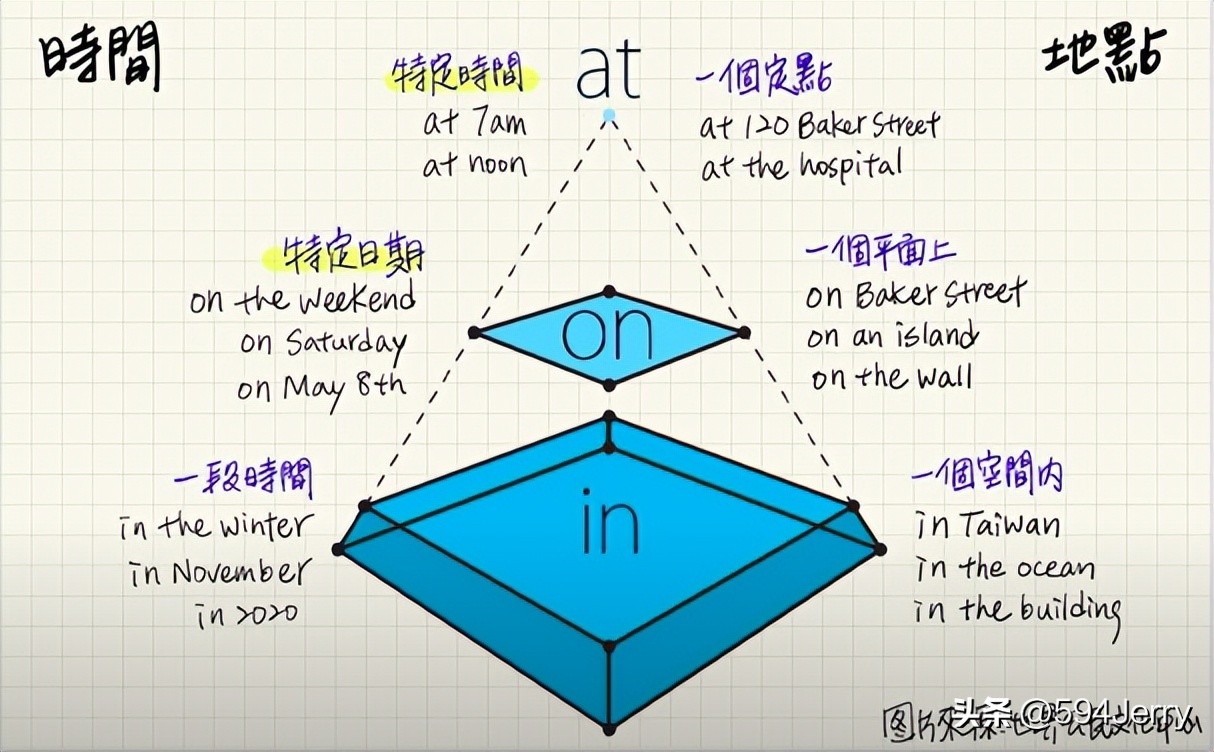 時間
地點
at
特定時間
at 7am
at noon
一個定點
at 120 Baker Street
at the hospital
特定日期
on the weekend
on Saturday
on May 8th
on
一個平面上
on Baker Street
on an island
on the wall
一段時間
in the winter
in November
in 2020
in
一個空間内
in Taiwan
in the ocean
in the building
头条 @594Jerry
图片來源